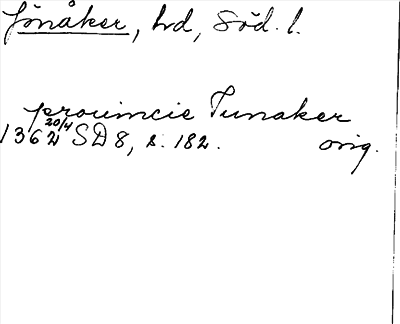 Jönåker, hd, Söd. l.
prouincie Iunaker
1362 20/4 SD 8, s. 182. orig.